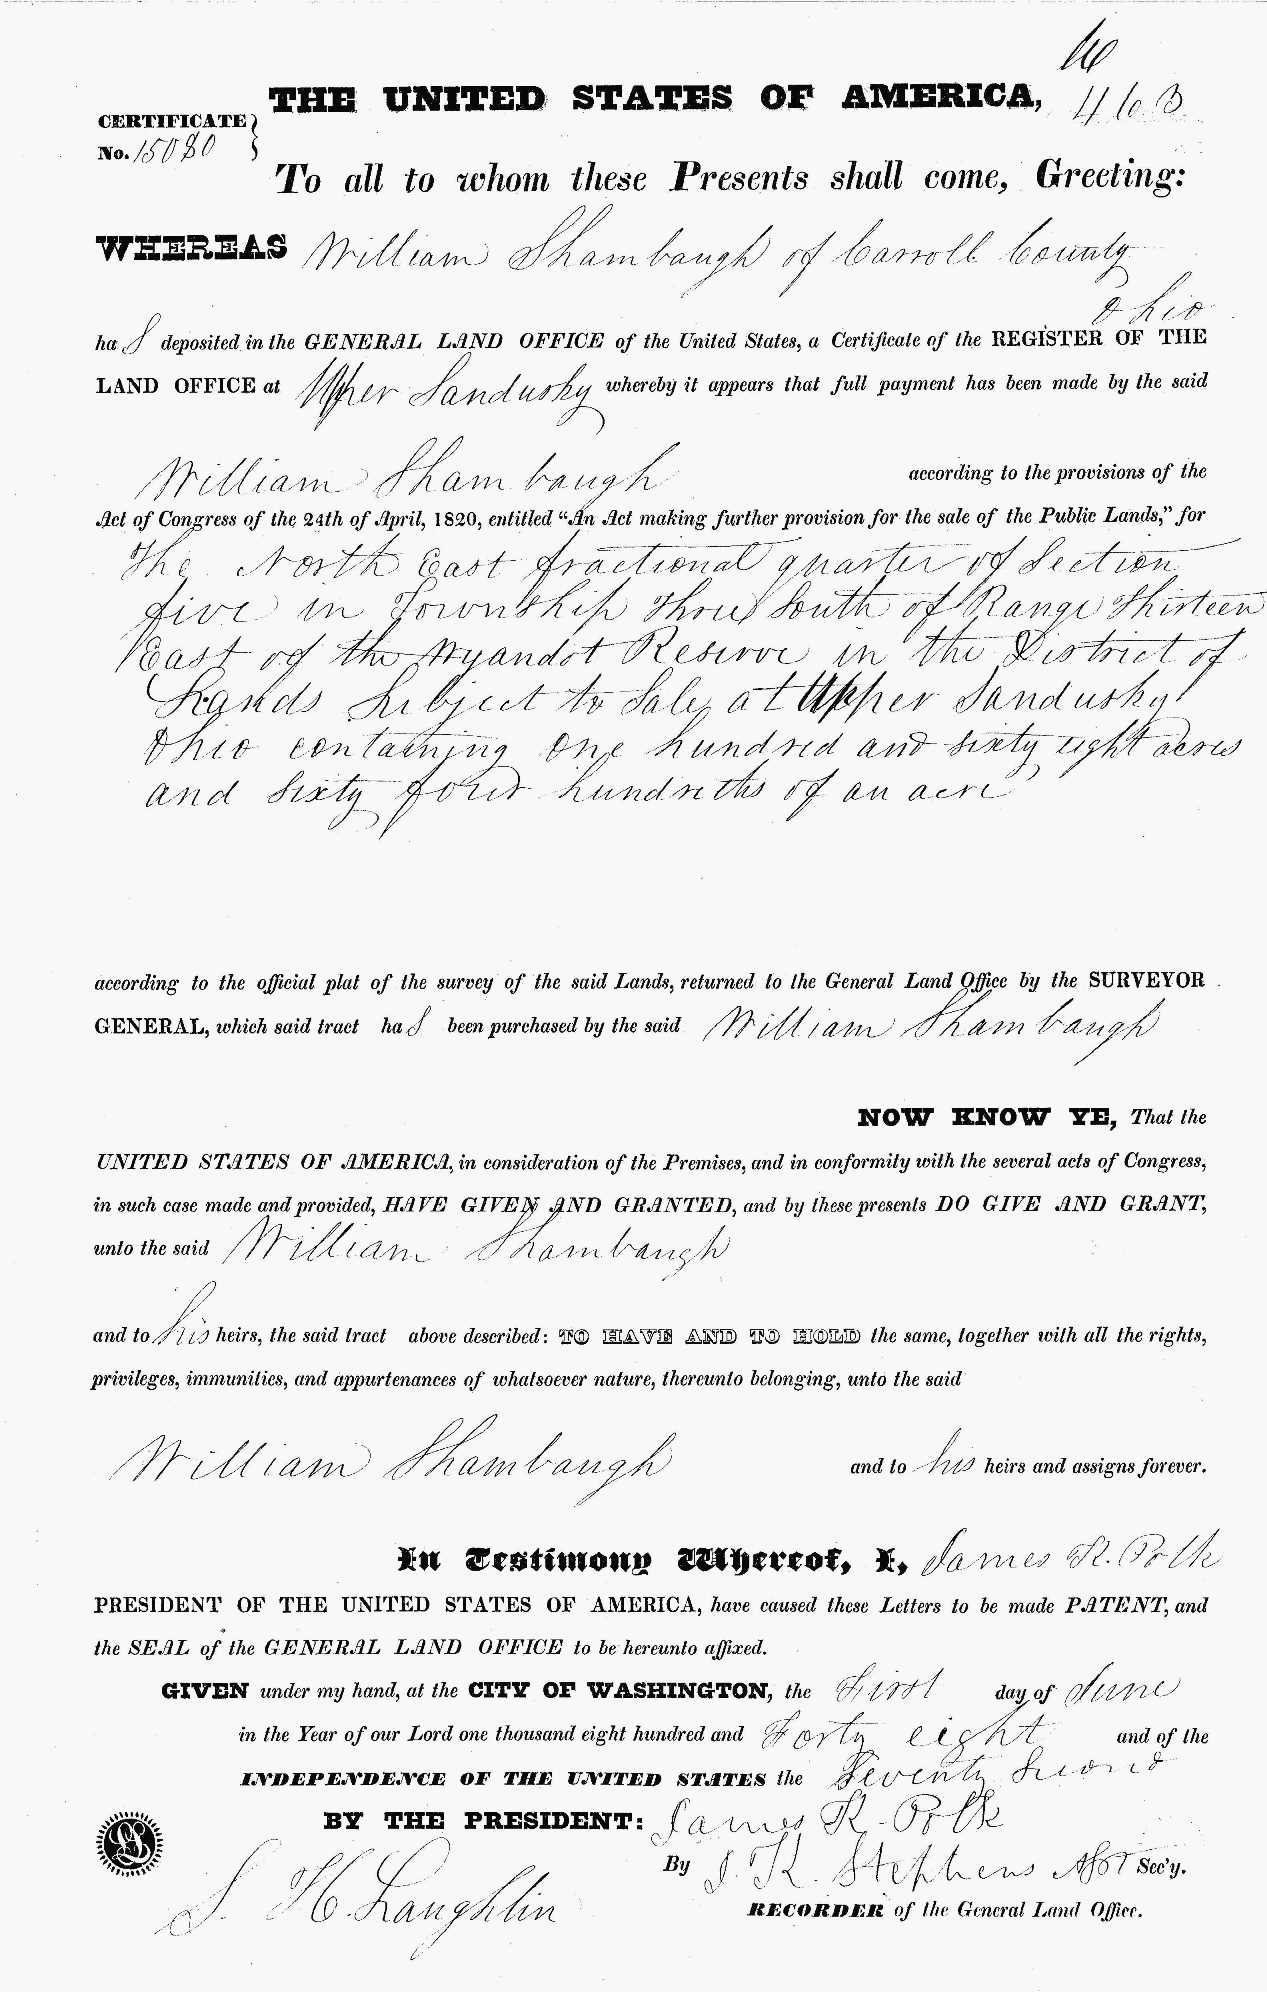 THE UNITED STATES OF AMERICA, 463
CERTIFICATE
No. 15080
To all to whom these Presents shall come, Greeting:
WHEREAS William Shambaugh of Carroll County
Ohio
ha s deposited in the GENERAL LAND OFFICE of the United States, a Certificate of the REGISTER OF THE
LAND OFFICE at Upper Sandusky whereby it appears that full payment has been made by the said
William Shambaugh according to the provisions of the
Act of Congress of the 24th of April, 1820, entitled “An Act making further provision for the sale of the Public Lands,” for
The North East fractional quarter of Section
five in Township Three South of Range Thirteen
East of the Wyandot Reserve in the District of
Lands Subject to Sale at Upper Sandusky
Ohio containing one hundred and sixty eight acres
and sixty four hundreths of an acre
according to the official plat of the survey of the said Lands, returned to the General Land Office by the SURVEYOR
GENERAL, which said tract ha s been purchased by the said William Shambaugh
NOW KNOW YE, That the
UNITED STATES OF AMERICA, in consideration of the Premises, and in conformity with the several acts of Congress,
in such case made and provided, HAVE GIVEN AND GRANTED, and by these presents DO GIVE AND GRANT,
unto the said William Shambaugh
and to his heirs, the said tract above described: TO HAVE AND TO HOLD the same, together with all the rights,
privileges, immunities, and appurtenances of whatsoever nature, thereunto belonging, unto the said
William Shambaugh and to his heirs and assigns forever.
In Testimony Whereof, I, James K. Polk
PRESIDENT OF THE UNITED STATES OF AMERICA, have caused these Letters to be made PATENT, and
the SEAL of the GENERAL LAND OFFICE to be hereunto affixed.
GIVEN under my hand, at the CITY OF WASHINGTON, the First day of June
in the Year of our Lord one thousand eight hundred and Forty eight and of the
INDEPENDENCE OF THE UNITED STATES the Seventy Second
BY THE PRESIDENT: James K. Polk
By J. K. Stephens Asst Sec'y.
S. H. Laughlin RECORDER of the General Land Office.